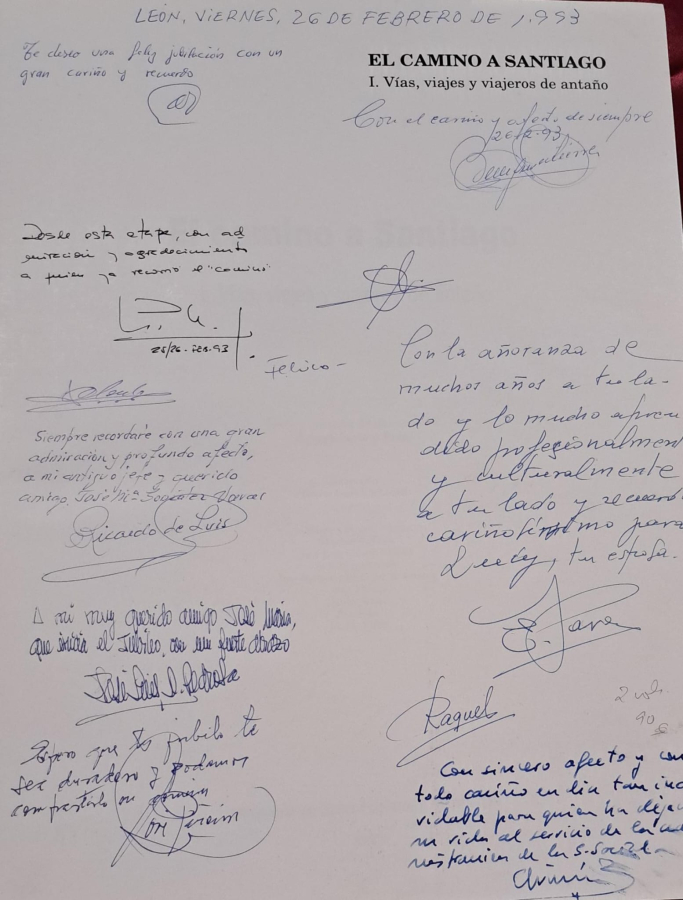 LEÓN, VIERNES, 26 DE FEBRERO DE 1.993
Te deseo una feliz jubilación con un
gran cariño y recuerdo
EL CAMINO A SANTIAGO
I. Vías, viajes y viajeros de antaño
Con el cariño y afecto de siempre
26-2-93
Desde esta etapa, con ad
miración y agradecimiento
a quien ya recorrió el "camino"
25/26-FEB-93
Siempre recordaré con una gran
admiración y profundo afecto,
a mi antiguo jefe y querido
amigo José Mª
Ricardo de Luis
Con la añoranza de
muchos años a tu la-
do y lo mucho apren
dido profesionalmen
y culturalmente
a tu lado y recuerdo
cariñosísimo para
, tu esposa.
A mi muy querido amigo José María,
que inicia el Jubileo, con un fuerte abrazo
José Luis
Espero que tu júbilo te
sea duradero y podamos
compartirlo en
Raquel
2 vols.
90
Con sincero afecto y con
todo cariño en día tan ino
vidable para quien ha dejado
su vida al servicio de la
de la S. Social.